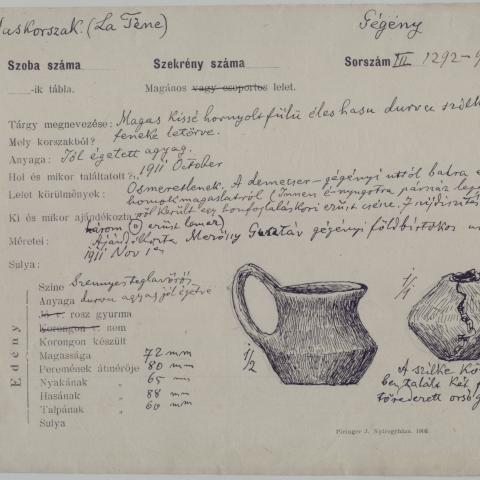 Vaskorszak. (La Tène) Gégény
Szoba száma Szekrény száma Sorszám III. 1292-9
-ik tábla. Magános vagy csoportos lelet.
Tárgy megnevezése: Magas kissé hornyolt fülü éles hasu durva szilke
Mely korszakból? feneke letörve.
Anyaga: Jól égetett agyag.
Hol és mikor találtatott? 1911 October
Lelet körülmények: Osmeretlenek. A demecser-gégényi uttól balra
homokmagaslatról (Innen
Ki és mikor ajándékozta ről került egy honfoglaláskori ezüst
három ezüst lemez)
Méretei: Ajándékozta Merőssy Gusztáv gégényi földbirtokos
1911 Nov 1
Sulya:
Edény
Szine Szennyes téglavörös
Anyaga durva agyag jól égetve
rosz gyurma
Korongon nem
Korongon készült
Magassága 72 mm
Peremének átmérője 80 mm
Nyakának " 65 mm
Hasának " 88 mm
Talpának " 60 mm
Sulya
1/2
1/1
A szilke
ben talált két
töredezett orsó
Piringer J. Nyiregyháza.